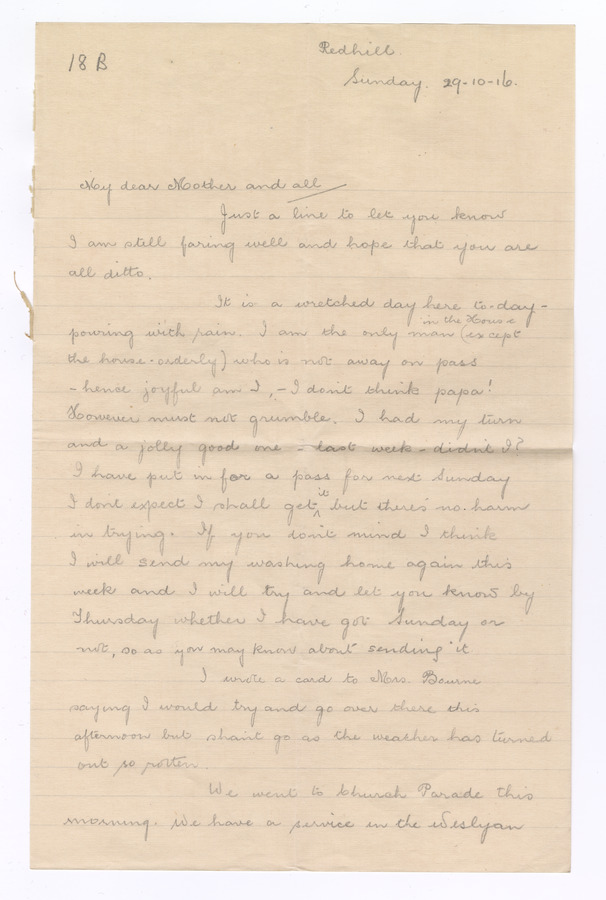 18 B
Redhill.
Sunday. 29-10-16.
My dear Mother and all
Just a line to let you know
I am still faring well and hope that you are
all ditto.
It is a wretched day here to-day -
pouring with rain. I am the only man in the House (except
the house-orderly) who is not away on pass
- hence joyful am I, - I don't think papa!
However must not grumble. I had my turn
and a jolly good one - last week - didn't I?
I have put in for a pass for next Sunday
I dont expect I shall get it but there's no harm
in trying. If you don't mind I think
I will send my washing home again this
week and I will try and let you know by
Thursday whether I have got Sunday or
not, so as you may know about sending it
I wrote a card to Mrs. Bourne
saying I would try and go over there this
afternoon but shan't go as the weather has turned
out so rotten.
We went to Church Parade this
morning. We have a service in the Weslyan